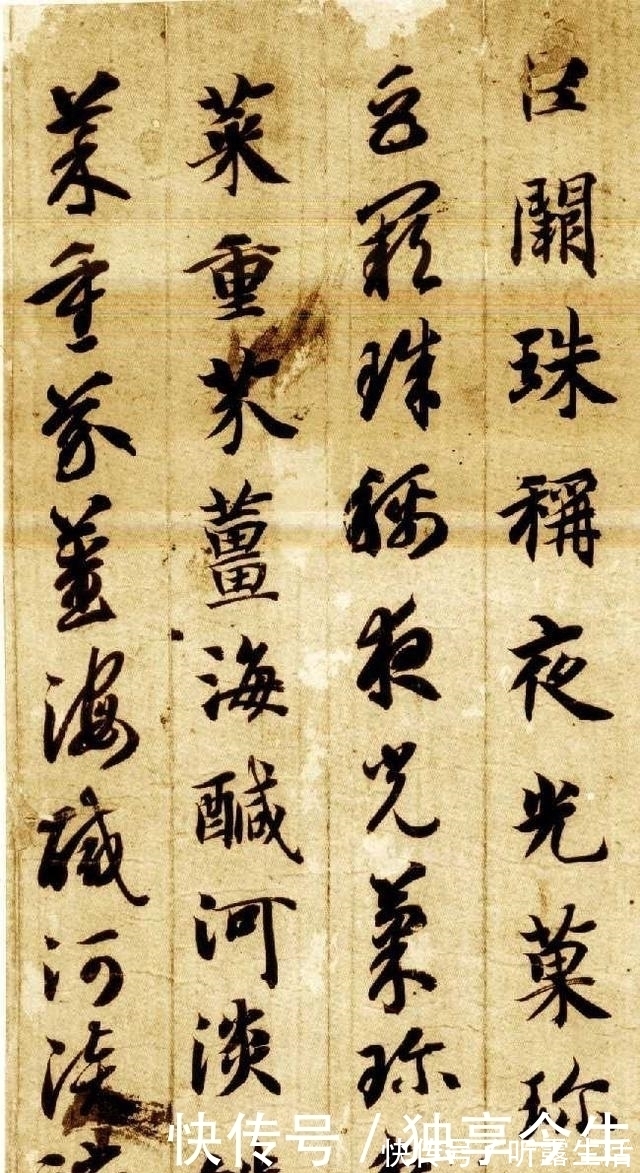 巨闕珠稱夜光菓珍
巨闕珠稱夜光菓珍
菜重芥薑海鹹河淡
菜重芥薑海鹹河淡
快传号 / 独享余生
快传号